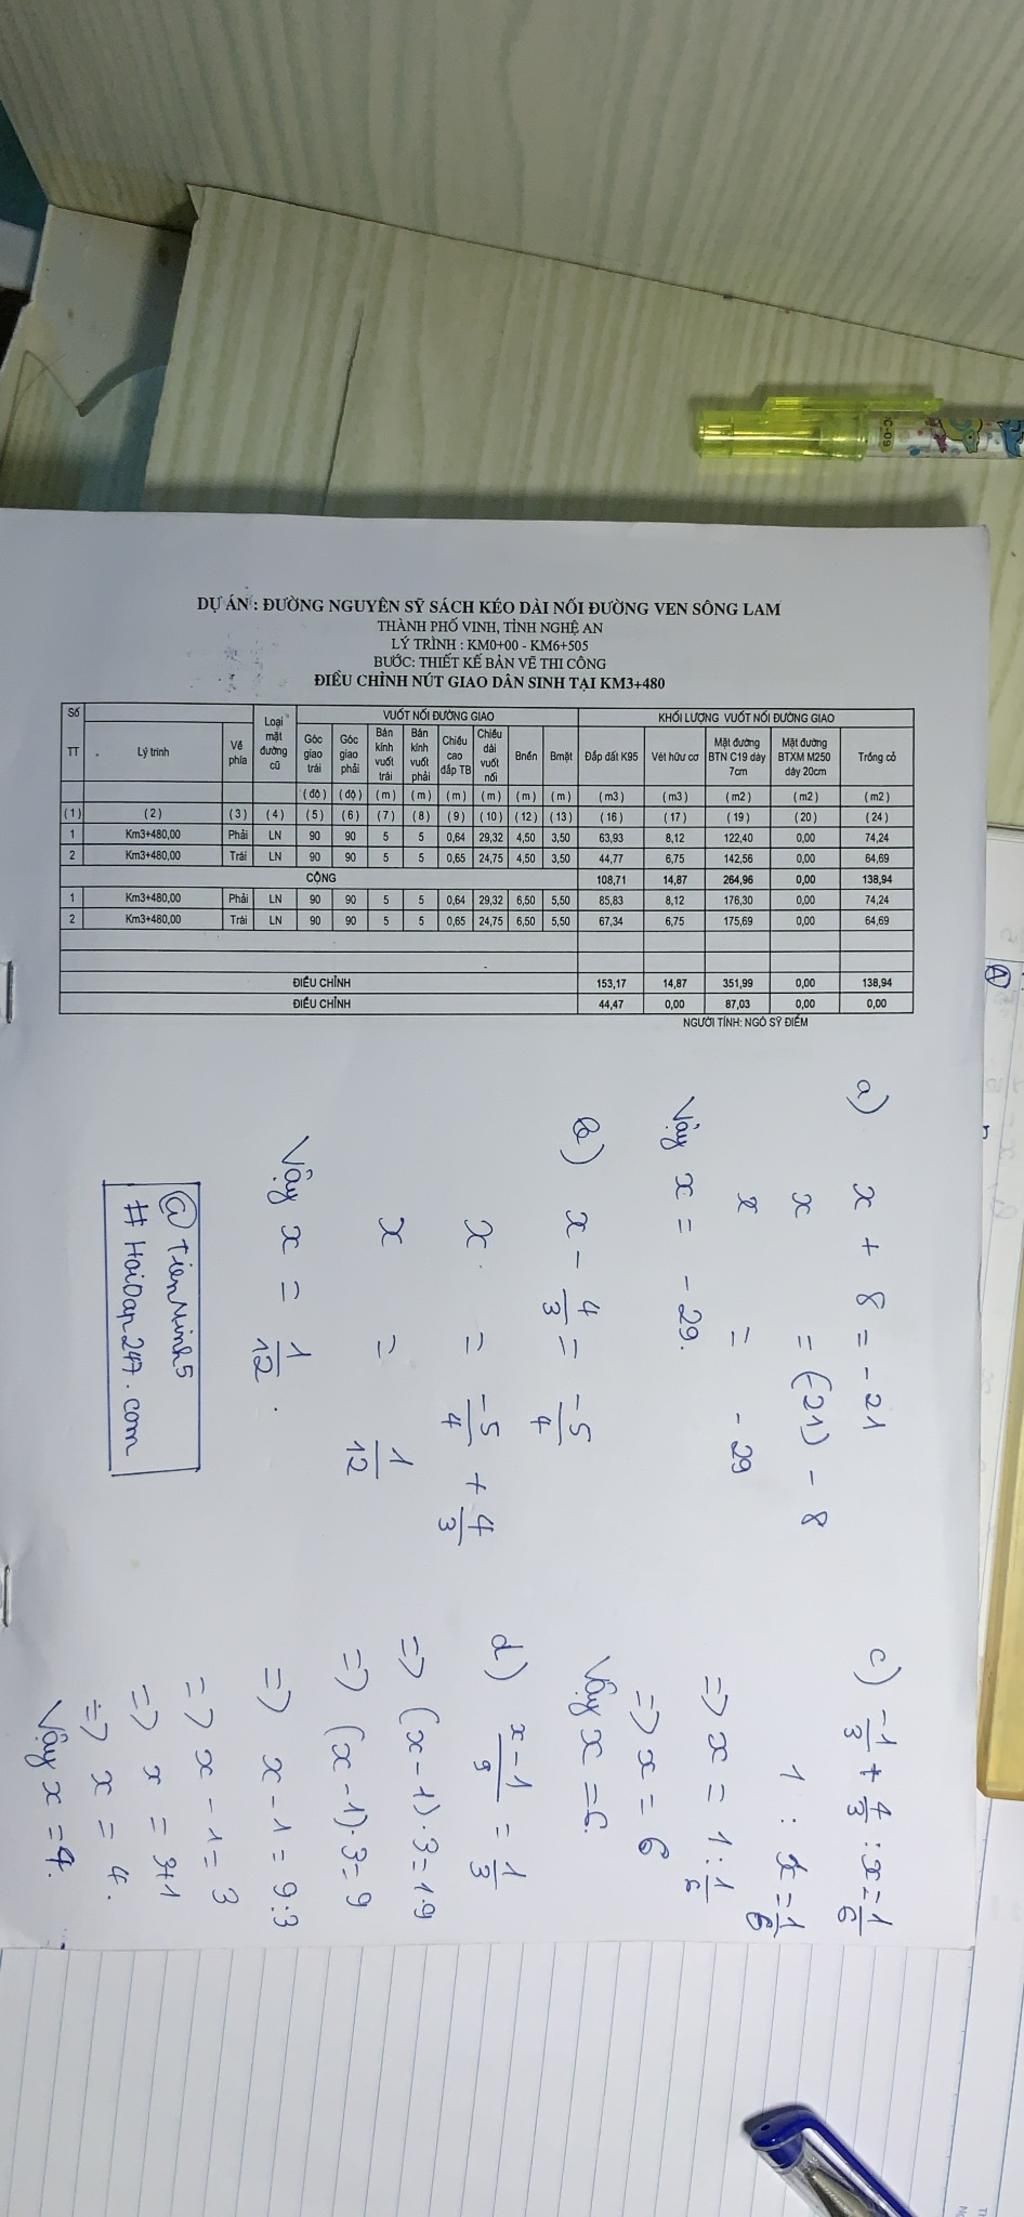 DỰ ÁN : ĐƯỜNG NGUYỄN SỸ SÁCH KÉO DÀI NỐI ĐƯỜNG VEN SÔNG LAM
THÀNH PHỐ VINH, TỈNH NGHỆ AN
LÝ TRÌNH : KM0+00 - KM6+505
BƯỚC: THIẾT KẾ BẢN VẼ THI CÔNG
ĐIỀU CHỈNH NÚT GIAO DÂN SINH TẠI KM3+480
Số TT Lý trình Về phía Loại mặt đường cũ VUỐT NỐI ĐƯỜNG GIAO KHỐI LƯỢNG VUỐT NỐI ĐƯỜNG GIAO
Góc giao trái Góc giao phải Bán kính vuốt trái Bán kính vuốt phải Chiều cao đắp TB Chiều dài vuốt nối Bnền Bmặt Đắp đất K95 Vét hữu cơ Mặt đường BTN C19 dày 7cm Mặt đường BTXM M250 dày 20cm Trồng cỏ
(độ) (độ) (m) (m) (m) (m) (m) (m) (m3) (m3) (m2) (m2) (m2)
(1) (2) (3) (4) (5) (6) (7) (8) (9) (10) (12) (13) (16) (17) (19) (20) (24)
1 Km3+480,00 Phải LN 90 90 5 5 0,64 29,32 4,50 3,50 63,93 8,12 122,40 0,00 74,24
2 Km3+480,00 Trái LN 90 90 5 5 0,65 24,75 4,50 3,50 44,77 6,75 142,56 0,00 64,69
CỘNG 108,71 14,87 264,96 0,00 138,94
1 Km3+480,00 Phải LN 90 90 5 5 0,64 29,32 6,50 5,50 85,83 8,12 176,30 0,00 74,24
2 Km3+480,00 Trái LN 90 90 5 5 0,65 24,75 6,50 5,50 67,34 6,75 175,69 0,00 64,69
ĐIỀU CHỈNH 153,17 14,87 351,99 0,00 138,94
ĐIỀU CHỈNH 44,47 0,00 87,03 0,00 0,00
NGƯỜI TÍNH: NGÔ SỸ ĐIỂM
a) x + 8 = -21
x = (-21) - 8
x = -29
Vậy x = -29.
b) x - 4/3 = -5/4
x = -5/4 + 4/3
x = 1/12
Vậy x = 1/12.
@TienMinh5
#HoiDap247.com
c) -1/3 + 4/3 : x = 1/6
1 : x = 1/6
=> x = 1 : 1/6
=> x = 6
Vậy x = 6.
d) x-1/9 = 1/3
=> (x-1).3=1.9
=> (x-1).3=9
=> x-1=9:3
=> x-1=3
=> x=3+1
=> x=4.
Vậy x=4.